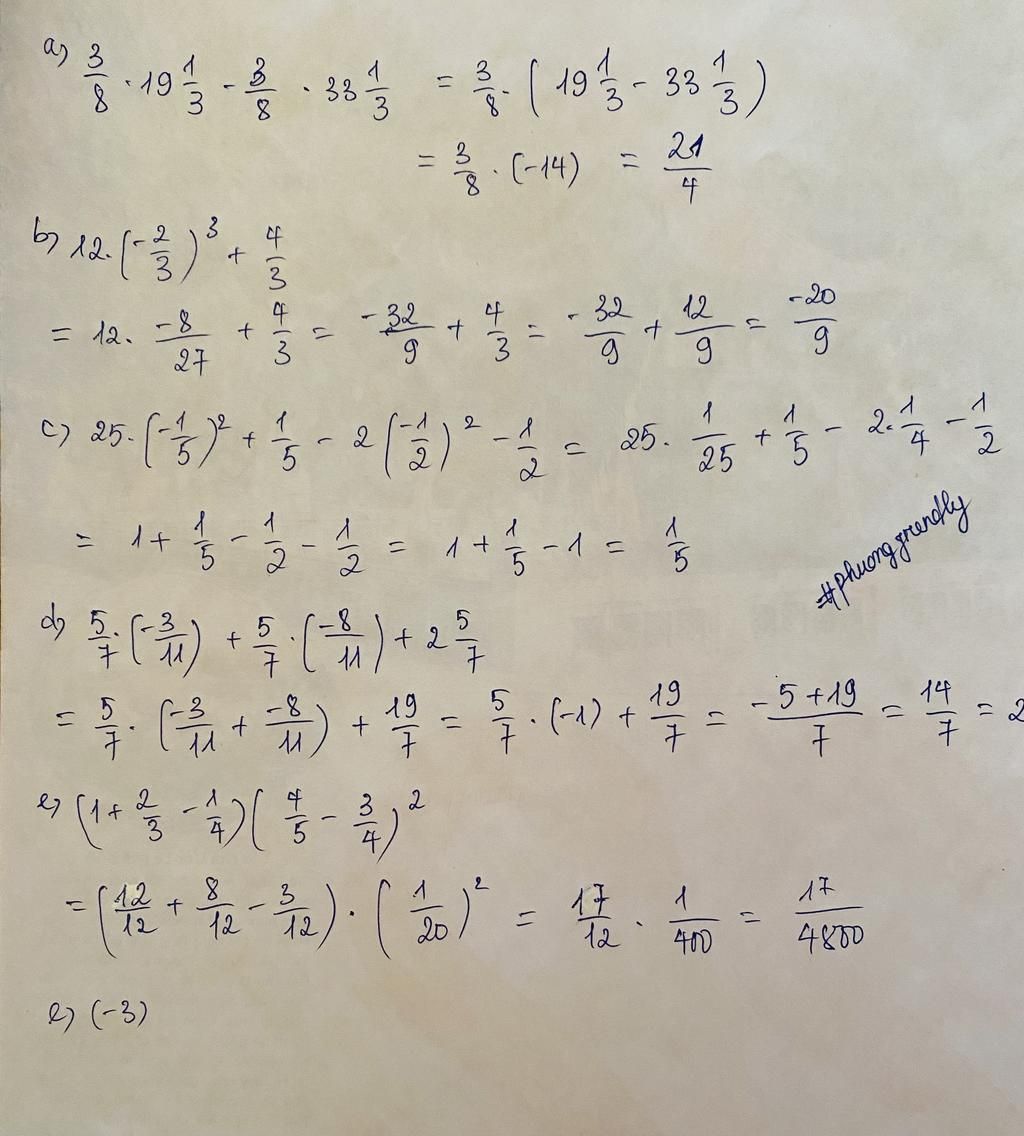 a) 3/8 · 19 1/3 - 3/8 · 33 1/3 = 3/8 · (19 1/3 - 33 1/3)
= 3/8 · (-14) = 21/4
b) 12. (-2/3)^3 + 4/3
= 12. -8/27 + 4/3 = -32/9 + 4/3 = -32/9 + 12/9 = -20/9
c) 25. (-1/5)^2 + 1/5 - 2 (-1/2)^2 - 1/2 = 25. 1/25 + 1/5 - 2. 1/4 - 1/2
= 1 + 1/5 - 1/2 - 1/2 = 1 + 1/5 - 1 = 1/5
#phuonggrendly
d) 5/7 . (-3/11) + 5/7 . (-8/11) + 2 5/7
= 5/7 . (-3/11 + -8/11) + 19/7 = 5/7 . (-1) + 19/7 = (-5 + 19)/7 = 14/7 = 2
e) (1 + 2/3 - 1/4) (4/5 - 3/4)^2
= (12/12 + 8/12 - 3/12) . (1/20)^2 = 17/12 . 1/400 = 17/4800
e) (-3)